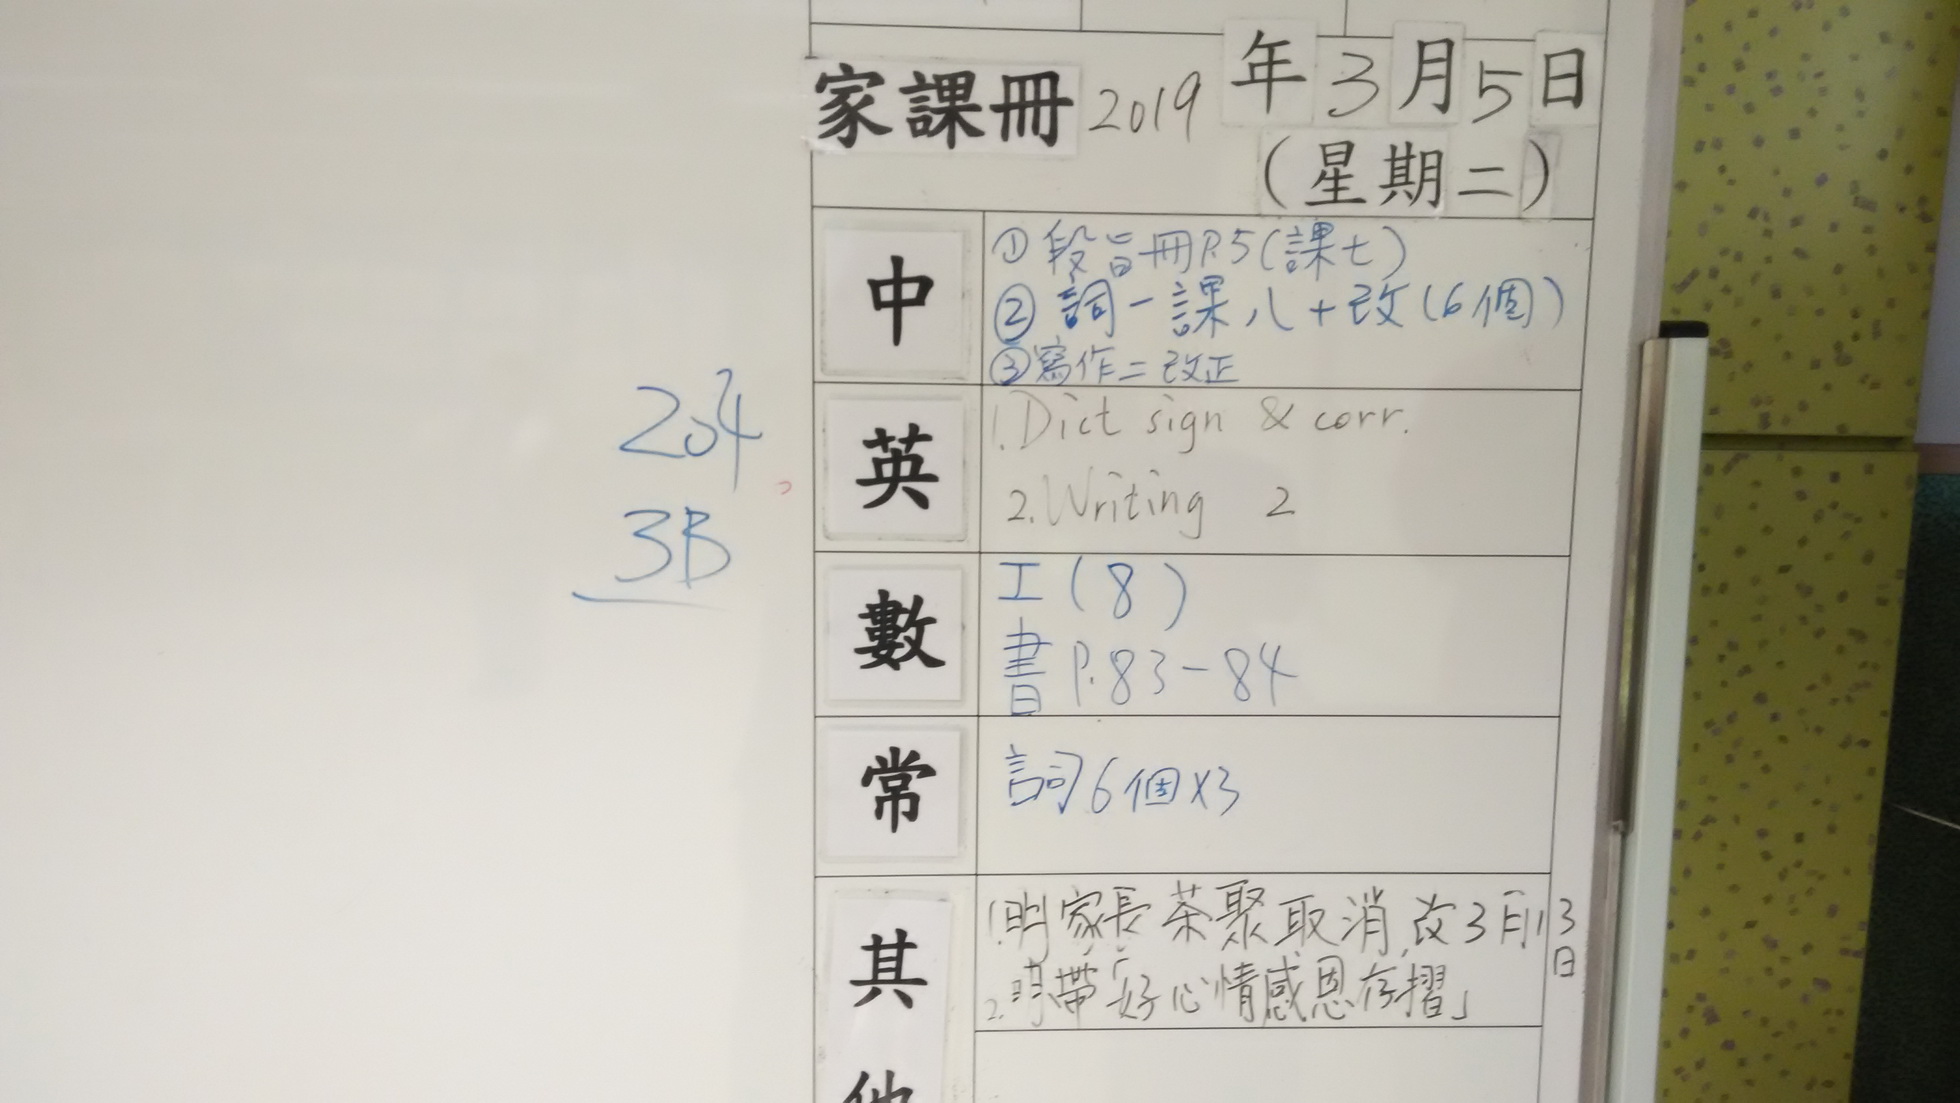 家課冊 2019 年 3 月 5 日
(星期二)
中
① 段旨冊 P.5 (課七)
② 詞-課八+改(6個)
③ 寫作二改正
204
3B
英
1. Dict sign & corr.
2. Writing 2
數
工(8)
書 P.83-84
常
詞6個x3
其他
1. 明家長茶聚取消,改3月13日
2. 明帶「好心情感恩存摺」